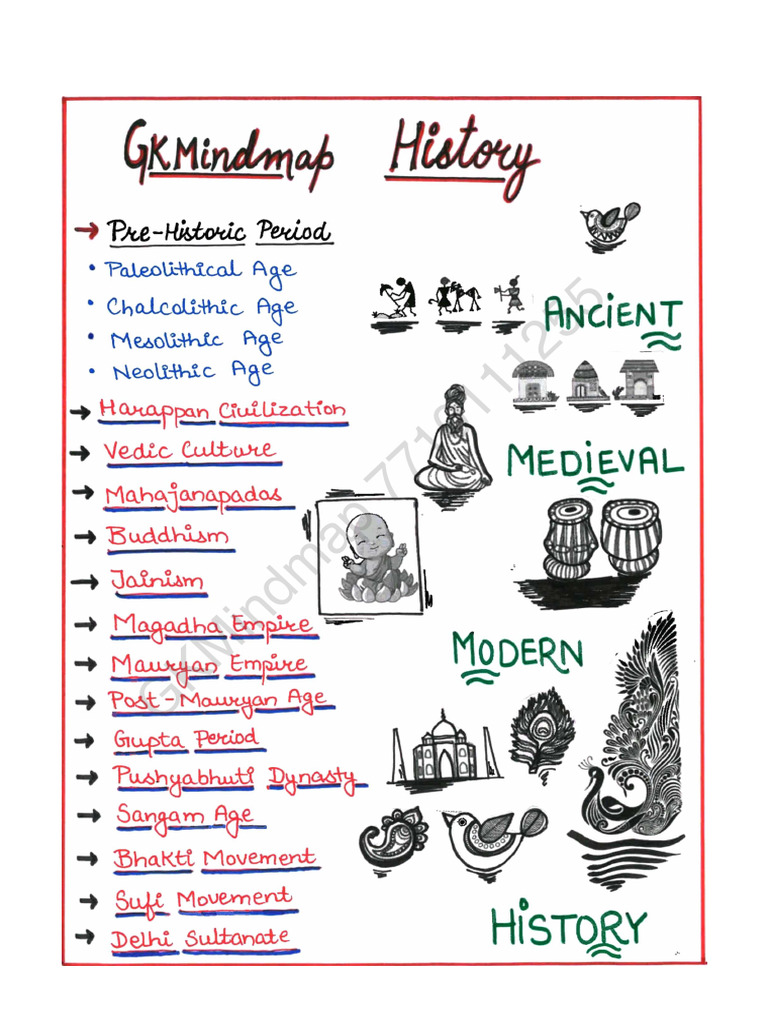 GKMindmap History
→ Pre-Historic Period
• Paleolithical Age
• Chalcolithic Age
• Mesolithic Age
• Neolithic Age
→ Harappan Civilization
→ Vedic Culture
→ Mahajanapadas
→ Buddhism
→ Jainism
→ Magadha Empire
→ Mauryan Empire
→ Post-Mauryan Age
→ Gupta Period
→ Pushyabhuti Dynasty
→ Sangam Age
→ Bhakti Movement
→ Sufi Movement
→ Delhi Sultanate
ANCIENT
MEDIEVAL
MODERN
HISTORY